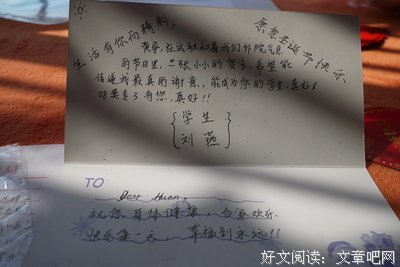 生活有你而精彩,
亲爱圣诞节快乐
英亲,在这秋和着我们外院气息
的节日里,一张小小的贺卡,希望能
传递我最真的谢意,能成为您的学生,真好!
08英专3有您,真好!!
学生
刘燕
TO
Dear Huan,
祝您身体健康,合家欢乐
快乐每一天 幸福到永远!!
好文阅读:文章吧网